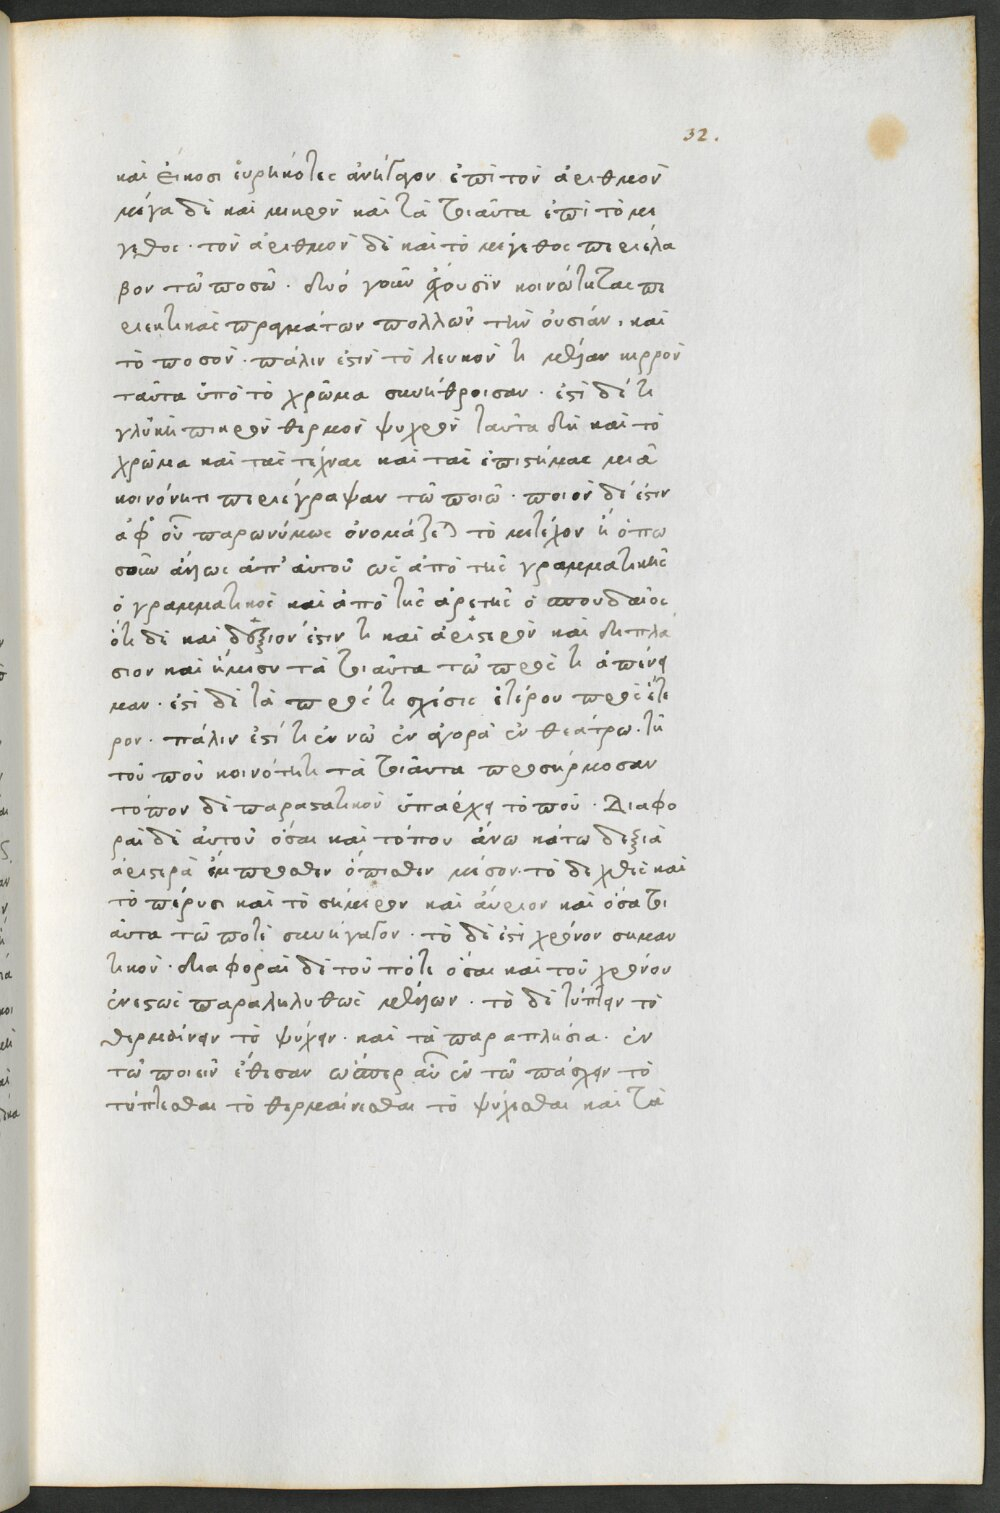 32.
καὶ εἴκοσι εὑρηκότες ἀνῆγον ἐπὶ τὸν ἀριθμὸν
μέγα δὲ καὶ μικρὸν καὶ τὰ τοιαῦτα ἐπὶ τὸ μέ
γεθος · τὸν ἀριθμὸν δὲ καὶ τὸ μέγεθος περιέλα
βον τῶ ποσῶ · δύο γοῦν ἔχουσϊν κοινότητας πε
ριεκτικὰς πραγμάτων πολλῶν τὴν οὐσιάν, καὶ
τὸ ποσὸν · πάλιν ἐστὶ τὸ λευκόν τε μέλαν κιρρὸν
ταῦτα ὑπὸ τὸ χρῶμα συνήθροισαν · ἐστὶ δέ τι
γλυκὺ πικρὸν θερμὸν ψυχρὸν ταῦτα δὴ καὶ τὸ
χρῶμα καὶ τὰς τέχνας καὶ τὰς ἐπιστήμας μιᾶ
περιέγραψαν τῶ ποιῶ · ποιὸν δέ ἐστιν
ἀφ οὗ παρωνύμως ὀνομάζεται τὸ μετέχον ἢ ὁπω
σοῦν ἄλλως ἀπ' αὐτοῦ ὡς ἀπὸ τῆς γραμματικῆς
ὁ γραμματικὸς καὶ ἀπὸ τῆς ἀρετῆς ὁ σπουδαῖος
ἔτι δὲ καὶ δεξιόν ἐστίν τι καὶ ἀριστερὸν καὶ διπλά
σιον καὶ ἥμισυ τὰ τοιαῦτα τῶ πρός τι ἀπένει
μαν · ἐστὶ δὲ τὰ πρός τι σχέσις ἑτέρου πρὸς ἕτε
ρον · πάλιν ἐστί τι ἐν ναῶ ἐν ἀγορᾶ ἐν θεάτρω · τῆ
τοῦ ποῦ κοινότητι τὰ τοιαῦτα προσήρμοσαν
τόπου δὲ παραστατικὸν ὑπάρχει τὸ ποῦ · Διαφο
ραὶ δὲ αὐτοῦ ὅσαι καὶ τόπου ἄνω κάτω δεξιὰ
ἀριστερὰ ἔμπροσθεν ὄπισθεν μέσον · τὸ δὲ χθὲς καὶ
τὸ πέρυσι καὶ τὸ σήμερον καὶ αὔριον καὶ ὅσα τοι
αῦτα τῶ ποτὲ συνήγαγον · τὸ δέ ἐστι χρόνου σημαν
τικὸν · διαφοραὶ δὲ τοῦ πότε ὅσαι καὶ τοῦ χρόνου
ἐνεστὼς παραληλυθὼς μέλλων · τὸ δὲ τύπτειν τὸ
θερμαίνειν τὸ ψύχειν · καὶ τὰ παραπλήσια · ἐν
τῶ ποιεῖν ἔθεσαν ὥσπερ αὖ ἐν τῶ πάσχειν τὸ
τύπτεσθαι τὸ θερμαίνεσθαι τὸ ψύχεσθαι καὶ τὰ